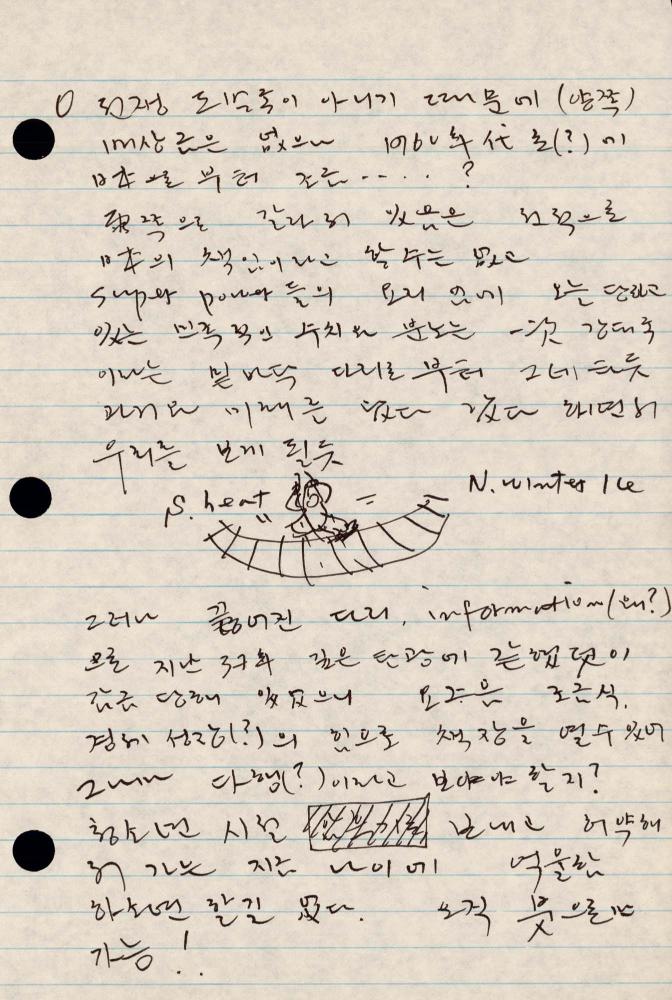 0 전쟁 도발국이 아니기 때문에 (양쪽)
보상금은 없으나 1960年代 초(?)에
日本으로 부터 조금 ..... ?
兩쪽으로 갈라져 있음은 전적으로
日本의 책임이라고 할 수는 없고
super power들의 요리 밑에 오늘 당하고
있는 민족적인 수치와 분노는 一次 강대국
이라는 밑바닥 다리로 부터 그네 타듯
과거와 미래를 왔다 갔다 하면서
우리를 보게 될듯
S. heat N. winter Ice
그러나 끊어진 다리, information(왜?)
으로 지난 37年 깊은 탄광에 갇혔던 이
감금 당해 있었으나 요즈음 조금씩,
경제 성장(?)의 힘으로 책장을 열 수 있어
그나마 다행(?)이라고 보아야 할지?
청소년 시절 보내고 허약해
져 가는 지금 나이에 억울함
하소연 할길 없다. 오직 붓으로만
가능!